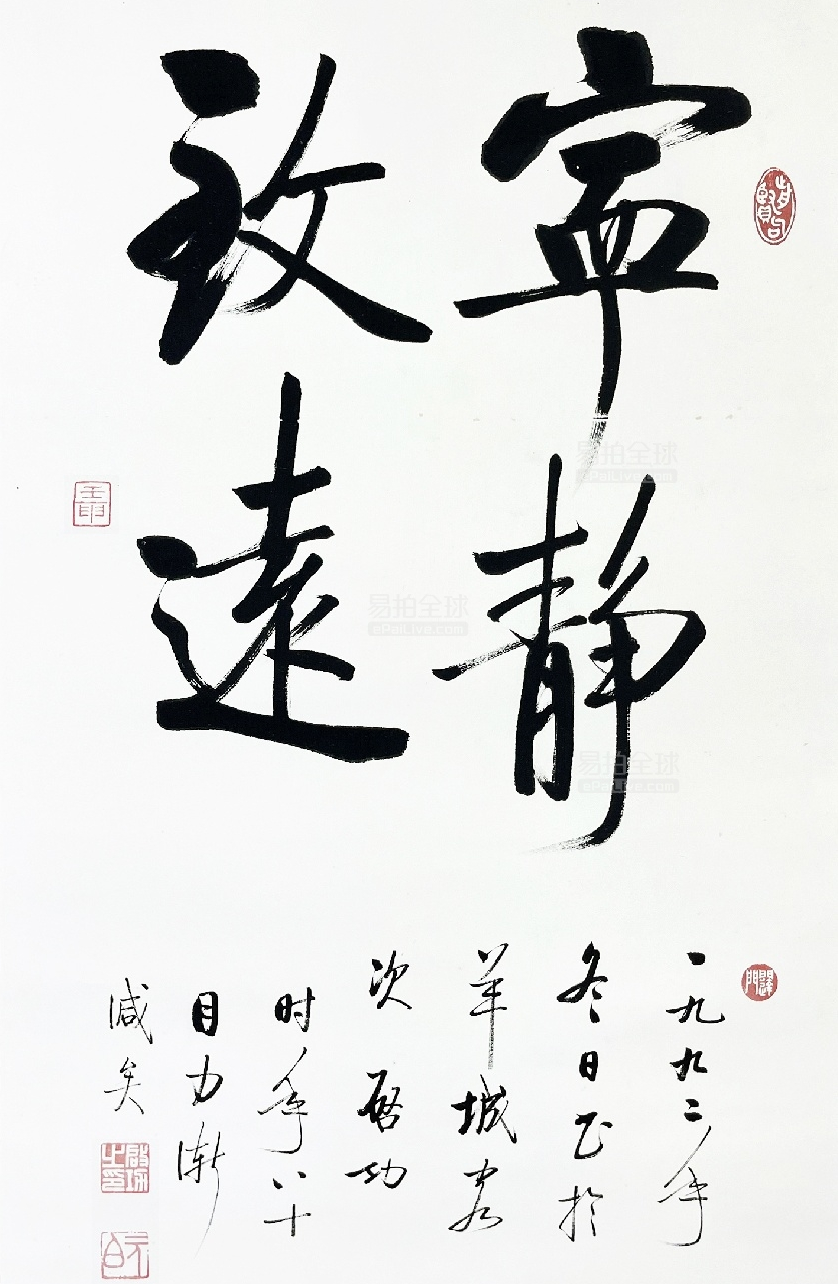 寧靜
致遠
一九九二年
冬日书於
羊城客
次 啓功
时年八十
目力漸
減矣
啟功之印
易拍全球
ePaiLive.com
易拍全球
ePaiLive.com
易拍全球
ePaiLive.com